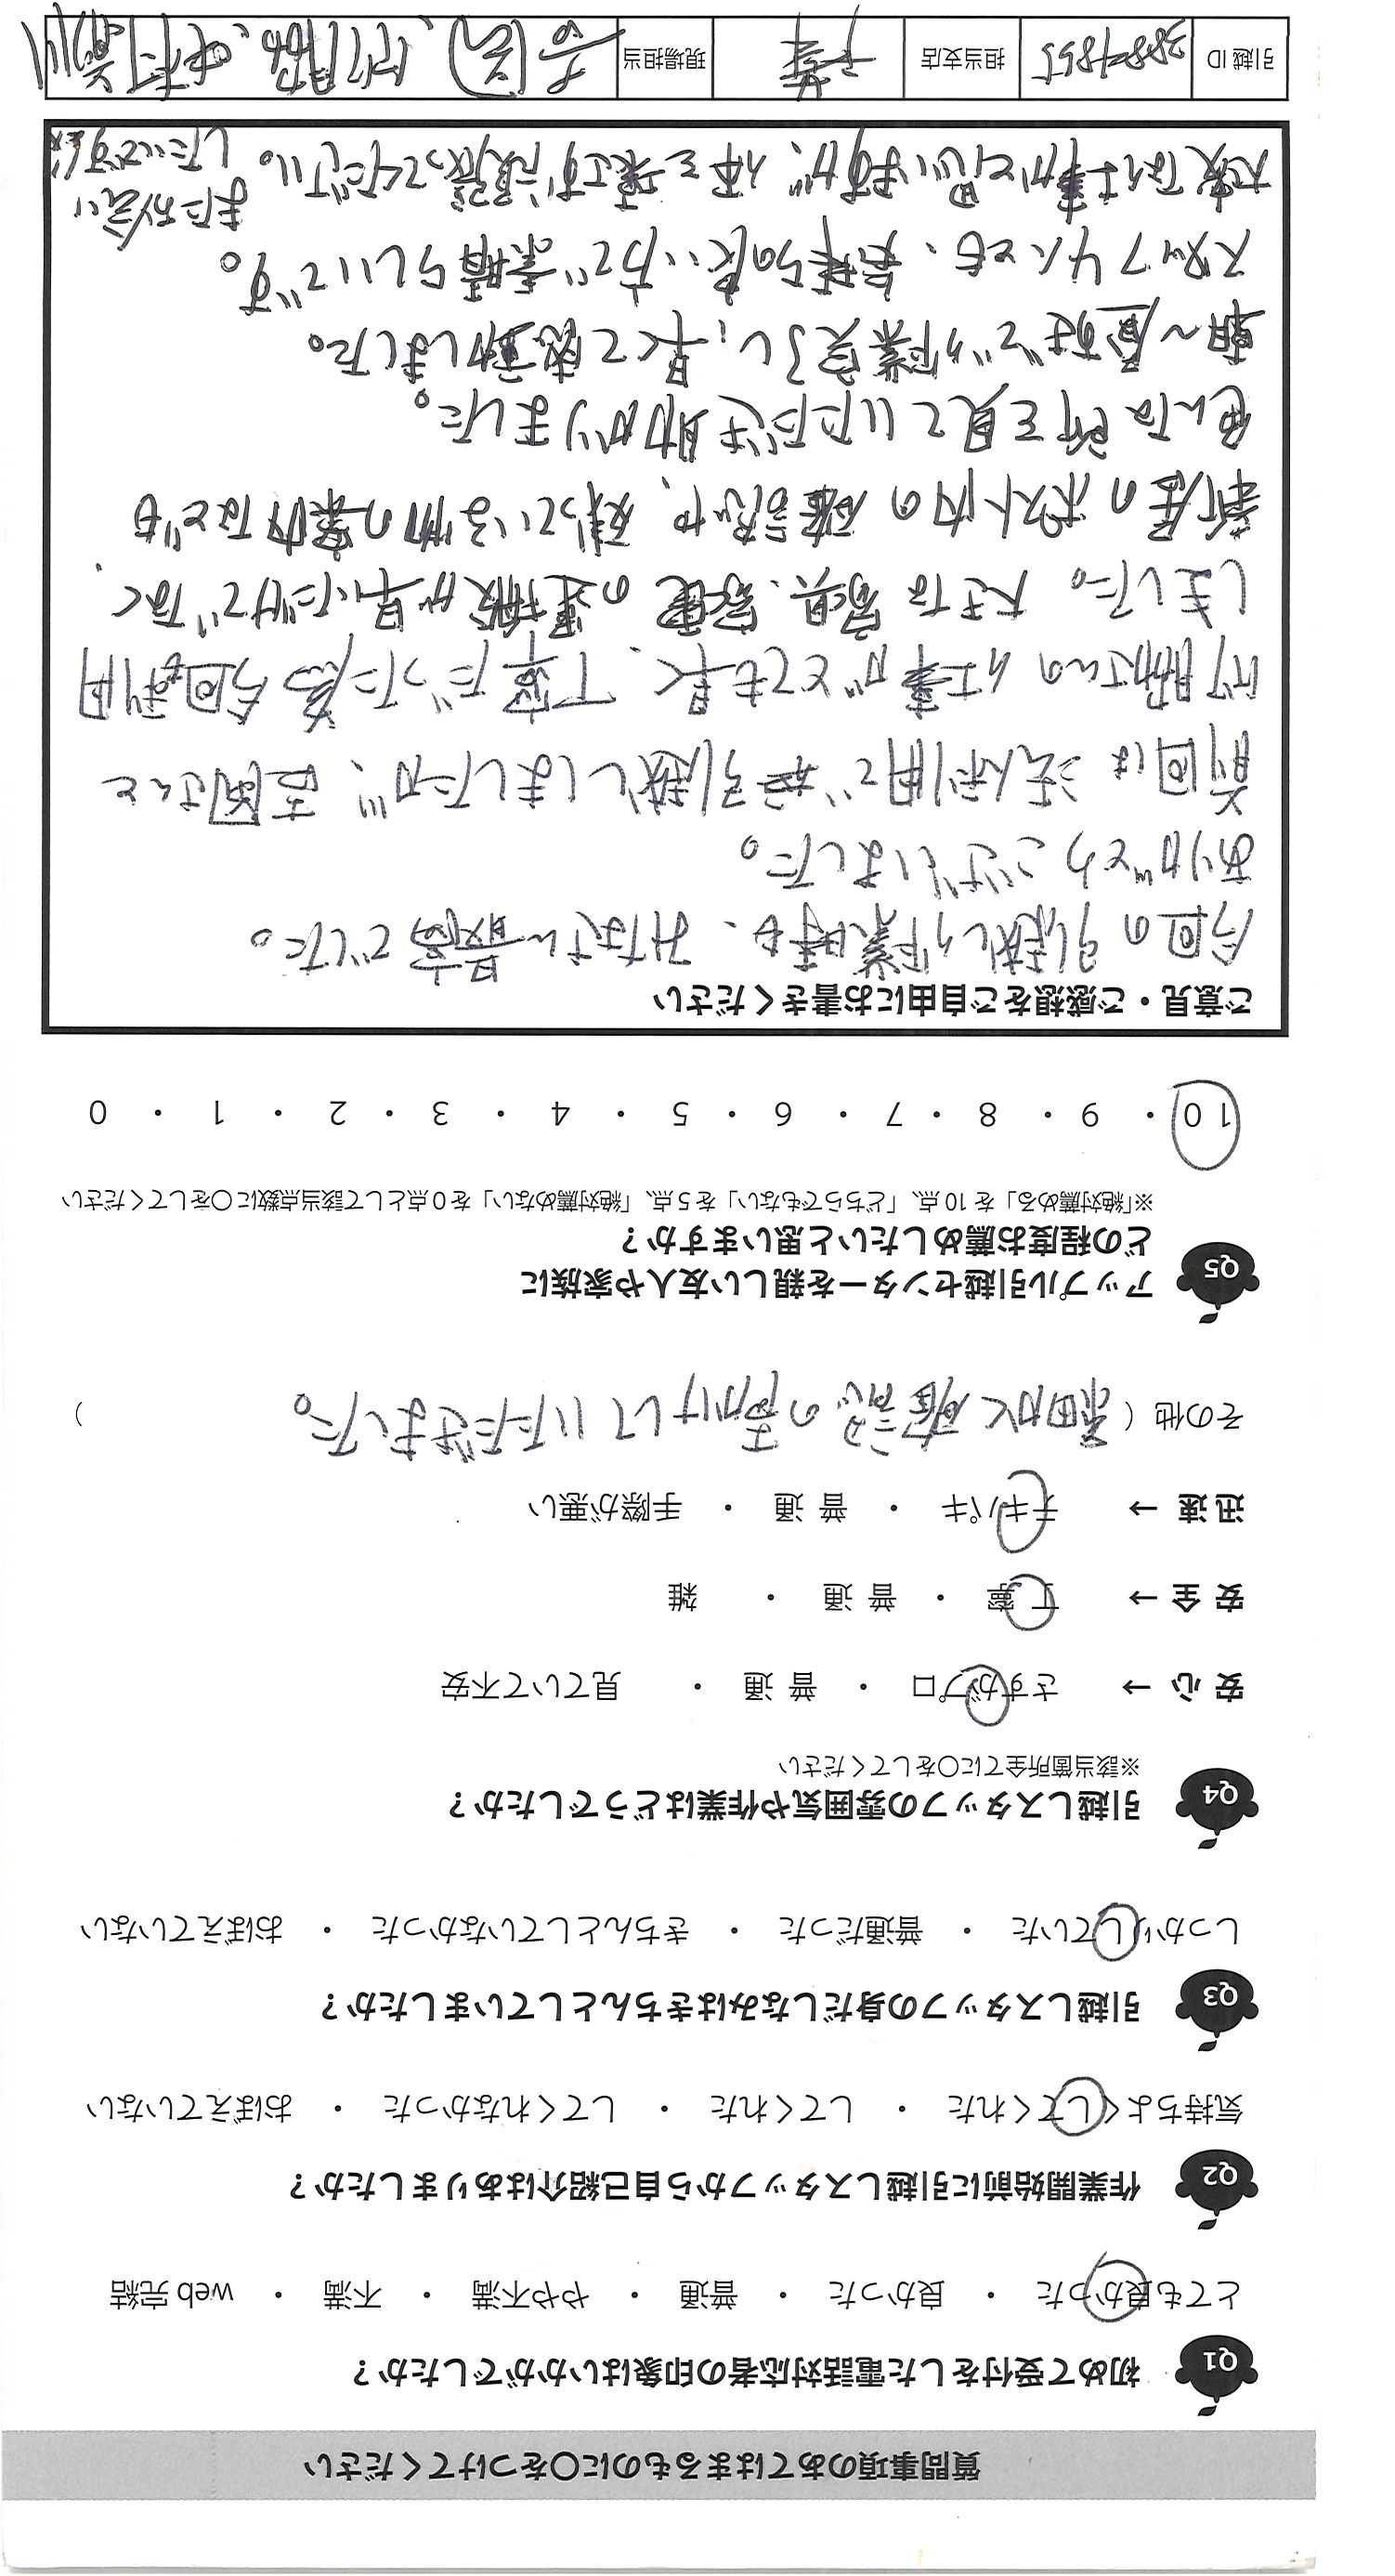 質問事項のあてはまるものに〇をつけてください
Q1 初めて受付をした電話対応者の印象はいかがでしたか？
とても良かった ・ 良かった ・ 普通 ・ やや不満 ・ 不満 ・ web 完結
Q2 作業開始前に引越しスタッフから自己紹介はありましたか？
気持ちよくしてくれた ・ してくれた ・ してくれなかった ・ おぼえていない
Q3 引越しスタッフの身だしなみはきちんとしていましたか？
しっかりしていた ・ 普通だった ・ きちんとしていなかった ・ おぼえていない
Q4 引越しスタッフの雰囲気や作業はどうでしたか？
※該当箇所全てに〇をしてください
安 心 → さすがプロ ・ 普 通 ・ 見ていて不安
安 全 → 丁 寧 ・ 普 通 ・ 雑
迅 速 → テキパキ ・ 普 通 ・ 手際が悪い
その他（ 細かく確認の声かけしていただきました。 ）
Q5 アップル引越センターを親しい友人や家族に
どの程度お薦めしたいと思いますか？
※「絶対薦める」を 10 点、「どちらでもない」を 5 点、「絶対薦めない」を 0 点として該当点数に〇をしてください
10 ・ 9 ・ 8 ・ 7 ・ 6 ・ 5 ・ 4 ・ 3 ・ 2 ・ 1 ・ 0
ご意見・ご感想をご自由にお書きください
今回の引越し作業時も、みなさん最高でした。
ありがとうございました。
前回は法人利用で引越ししましたが、吉岡さんと
さんの仕事がとても早く、丁寧だった為今回利用
しました。大きな家具、家電の運搬が早いだけでなく、
新居のポスト内の確認や、残っている物の案内なども
色んな所を見ていただき助かりました。
朝〜昼前まで作業完了し、早くて感動しました。
スタッフ4人とも、気持ちの良い方で素晴らしいです。
大変な仕事かと思いますが、体を壊さず頑張ってください。
またお会い
したいです
引越 ID
担当支店 千葉
現場担当 吉岡、